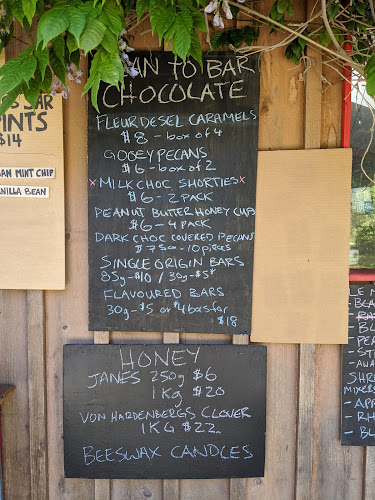 AN TO BAR
CHOCOLATE
FLEUR DE SEL CARAMELS
$8 - box of 4
GOOEY PECANS
$6 - box of 2
x MILK CHOC SHORTIES x
$6 - 2 PACK
PEANUT BUTTER HONEY CUPS
$6 - 4 PACK
DARK CHOC COVERED PECANS
$7.50 - 10 pieces
SINGLE ORIGIN BARS
85g - $10 / 30g - $5*
FLAVOURED BARS
30g - $5 or *4 bars for
$18
HONEY
JANES 250g $6
1 Kg $20
VON HARDENBERGS CLOVER
1 KG $22
BEESWAX CANDLES
BAR
INTS
$14
AN MINT CHIP
NILLA BEAN